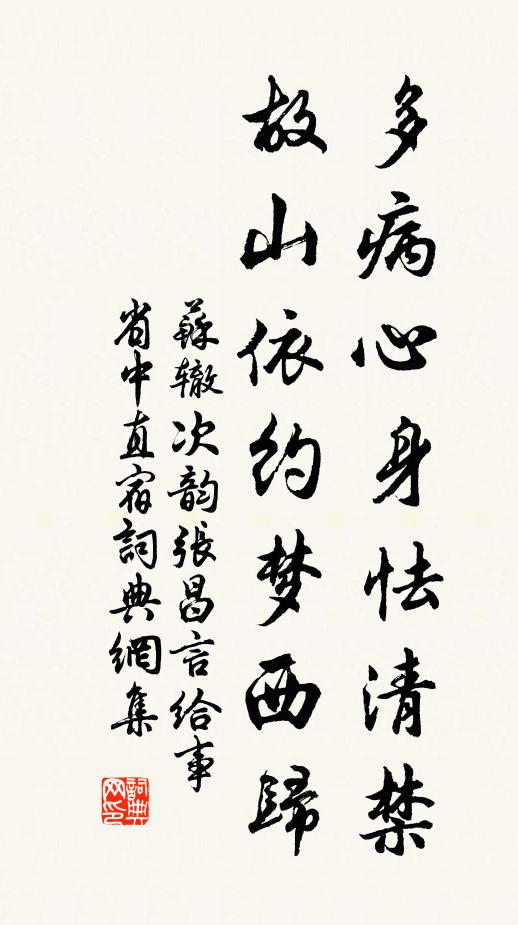 多病心身怯清禁
故山依约梦西歸
蘇辙次韵張昌言给事
省中直宿詞典網集
詞典网印